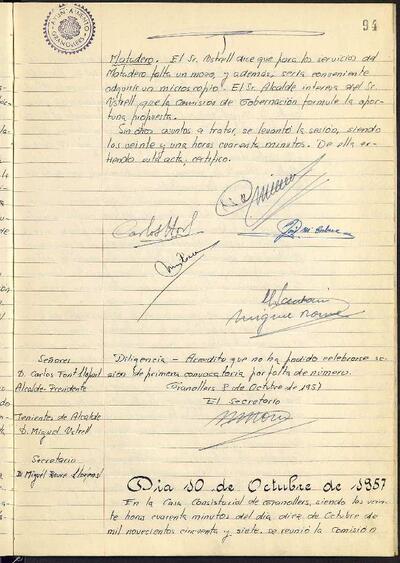 AYUNTAMIENTO
GRANOLLERS
94
Matadero. El Sr. Ustrell dice que para los servicios del
Matadero falta un mozo, y además, seria conveniente
adquirir un microscopio. El Sr. Alcalde interesa del Sr.
Ustrell, que la Comisión de Gobernación formule la opor-
tuna propuesta.
Sin otros asuntos a tratar, se levantó la sesión, siendo
las veinte y una horas cuarenta minutos. De ella ex-
tiendo esta acta, certifico.
Señores
D. Carlos Font Llopart
Alcalde-Presidente
Tenientes de Alcalde
D. Miguel Ustrell
Secretario
D. Miguel Roure
Diligencia - Acredito que no ha podido celebrarse se-
sión de primera convocatoria por falta de número.
Granollers 8 de Octubre de 1957
El Secretario
Dia 10 de Octubre de 1957
En la Casa Consistorial de Granollers, siendo las vein-
te hora cuarenta minutos del día diez de Octubre de
mil novecientos cincuenta y siete, se reunió la Comisión